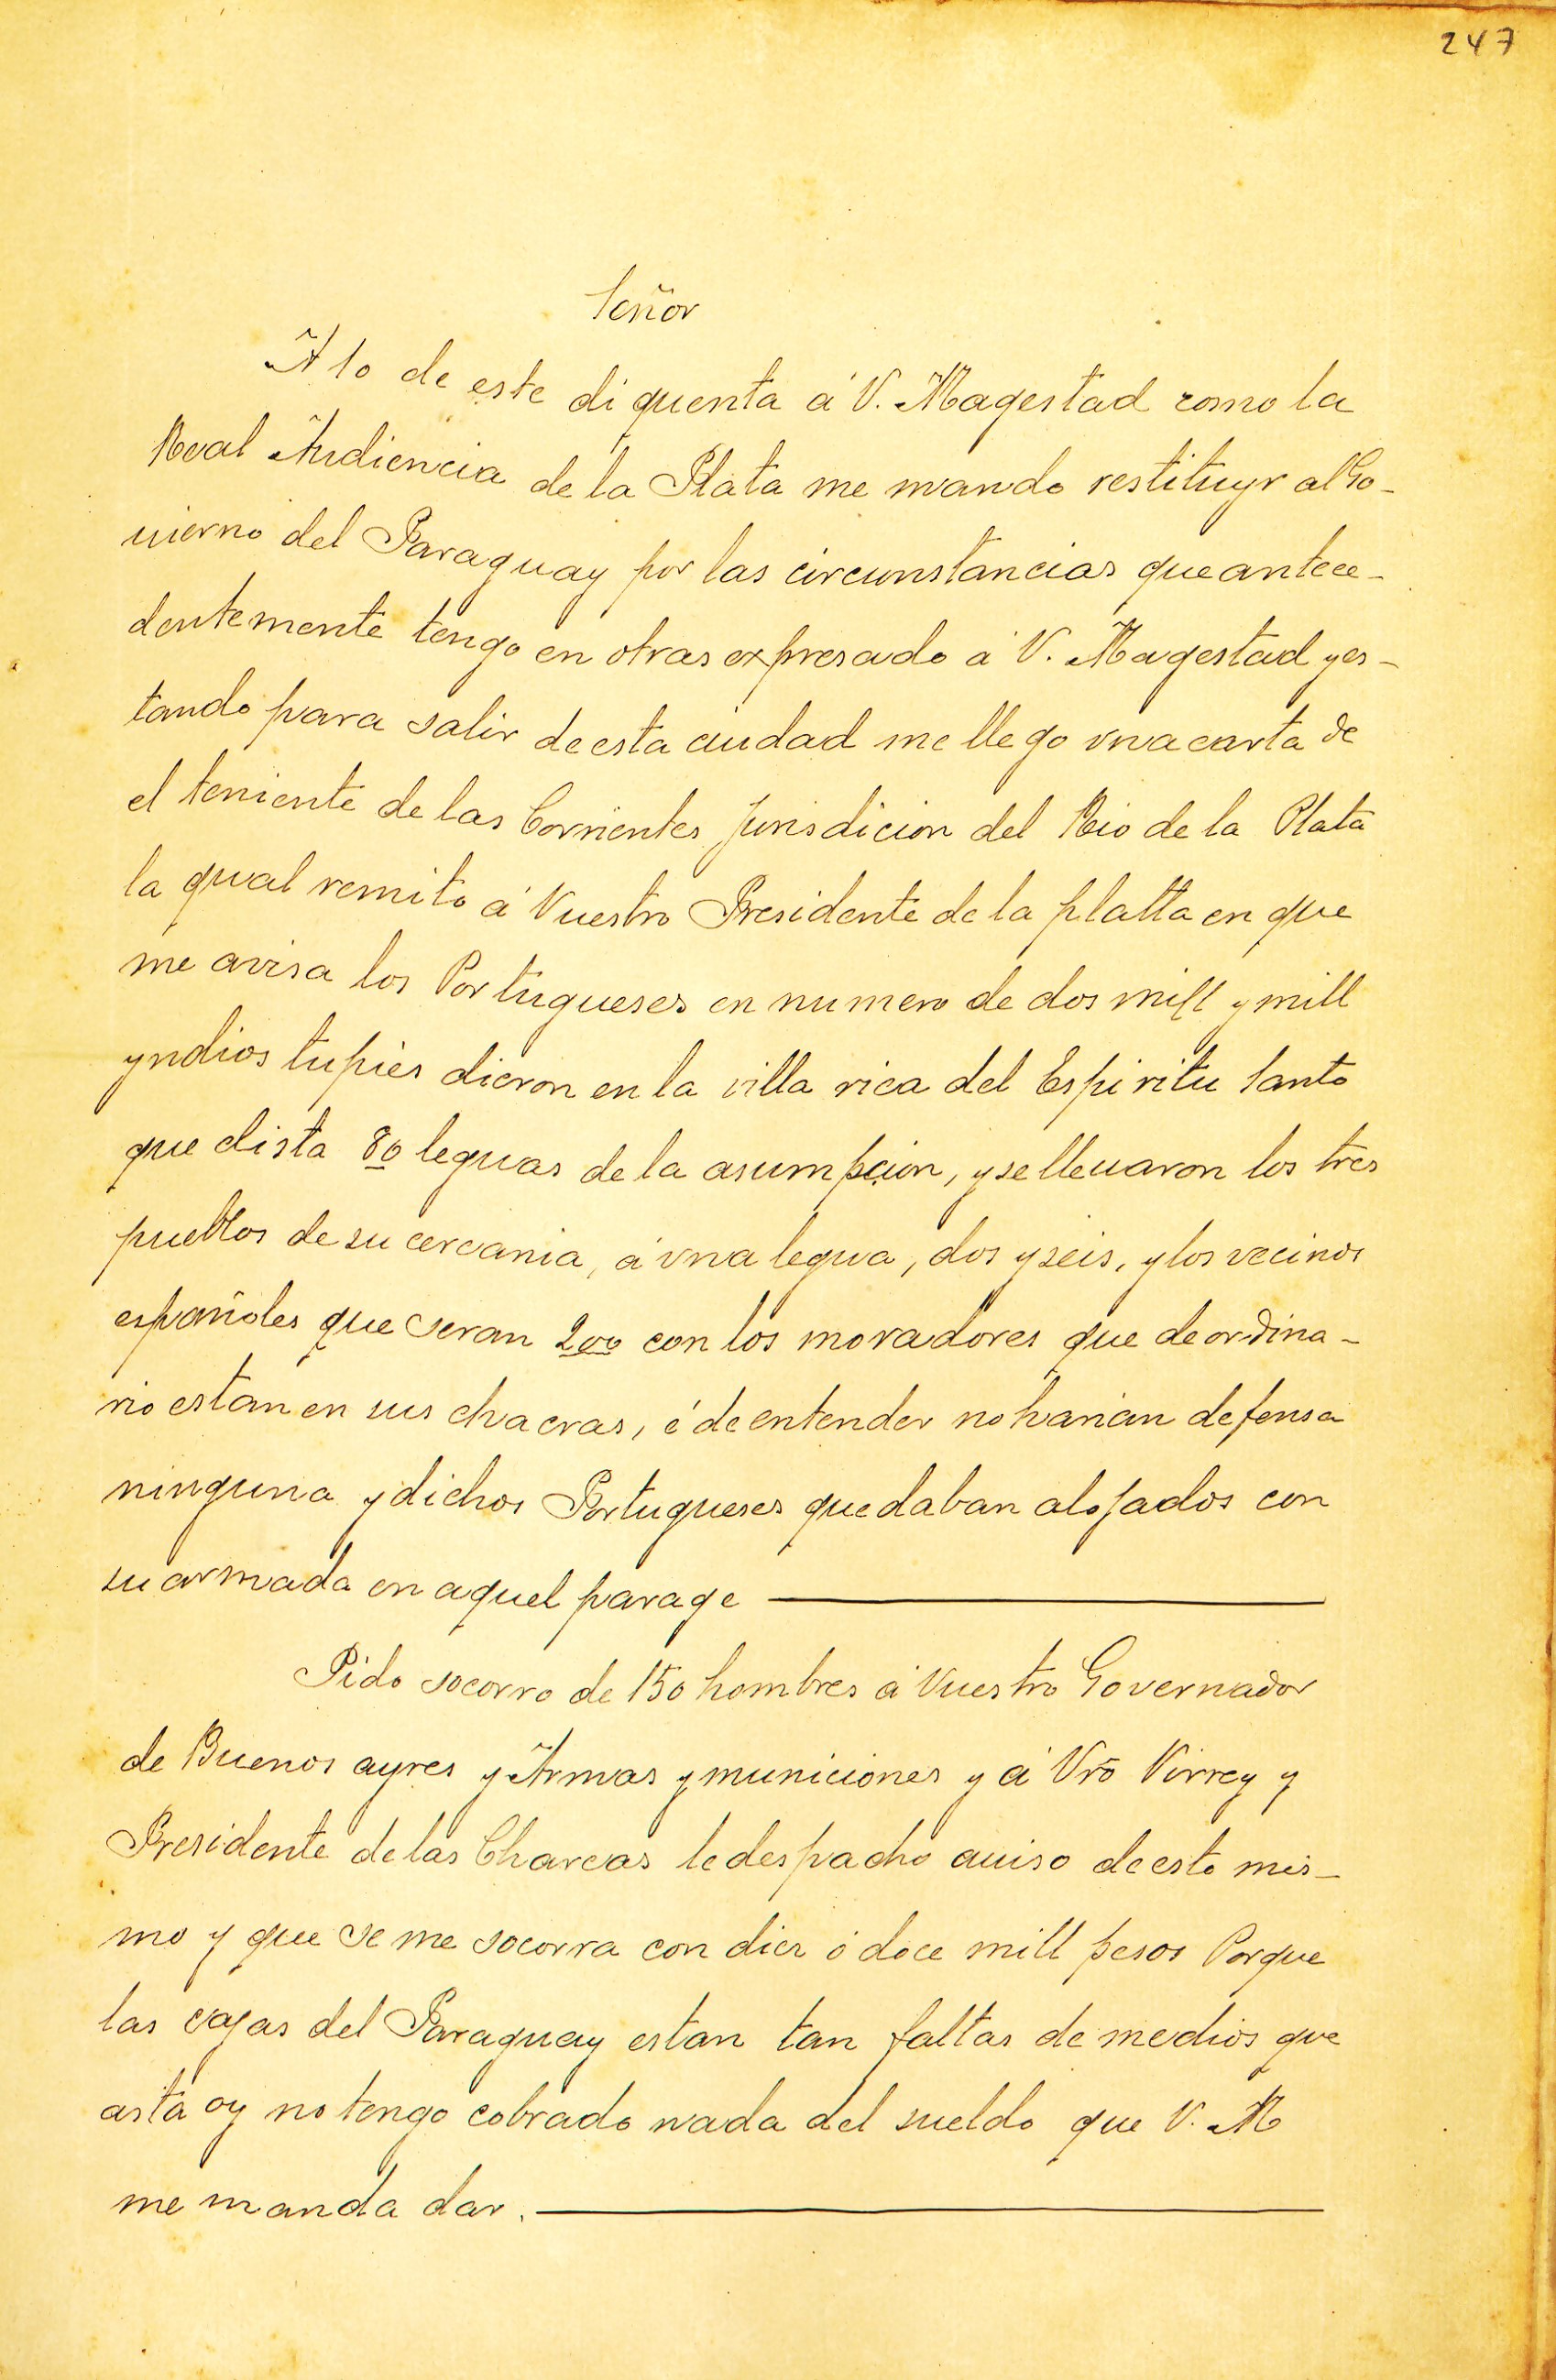 247
Señor
A 10 de este di quenta á V. Magestad como la
Real Audiencia de la Plata me mando restituyr al Go-
uierno del Paraguay por las circunstancias que antece-
dentemente tengo en otras expresado á V. Magestad y es-
tando para salir de esta ciudad me llego vna carta de
el teniente de las Corrientes jurisdicion del Rio de la Plata
la qual remito á Vuestro Presidente de la platta en que
me avisa los Portugueses en numero de dos mill y mill
yndios tupies dieron en la villa rica del Espiritu Santo
que dista 80 leguas de la asumpcion, y se lleuaron los tres
pueblos de su cercania, á vna legua, dos y seis, y los vecinos
españoles que seran 200 con los moradores que de ordina-
rio estan en sus chacras, é de entender no harian defensa
ninguna y dichos Portugueses quedaban alojados con
su armada en aquel parage
Pido socorro de 150 hombres á Vuestro Governador
de Buenos ayres y Armas y municiones y á Vrõ Virrey y
Presidente de las Charcas le despacho auiso de esto mis-
mo y que se me socorra con diez ó doce mill pesos Porque
las cajas del Paraguay estan tan faltas de medios que
asta oy no tengo cobrado nada del sueldo que V. M
me manda dar.